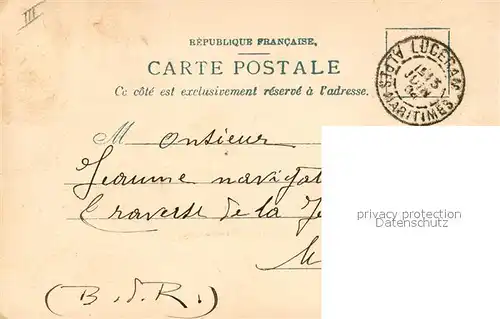 III
RÉPUBLIQUE FRANÇAISE,
CARTE POSTALE
Ce côté est exclusivement réservé à l'adresse.
LUCERAM
13
JUIN
ALPES MARITIMES
Monsieur
Jeaume navigat
Traverse de la Je
M
(B. d. R.)
privacy protection
watermark